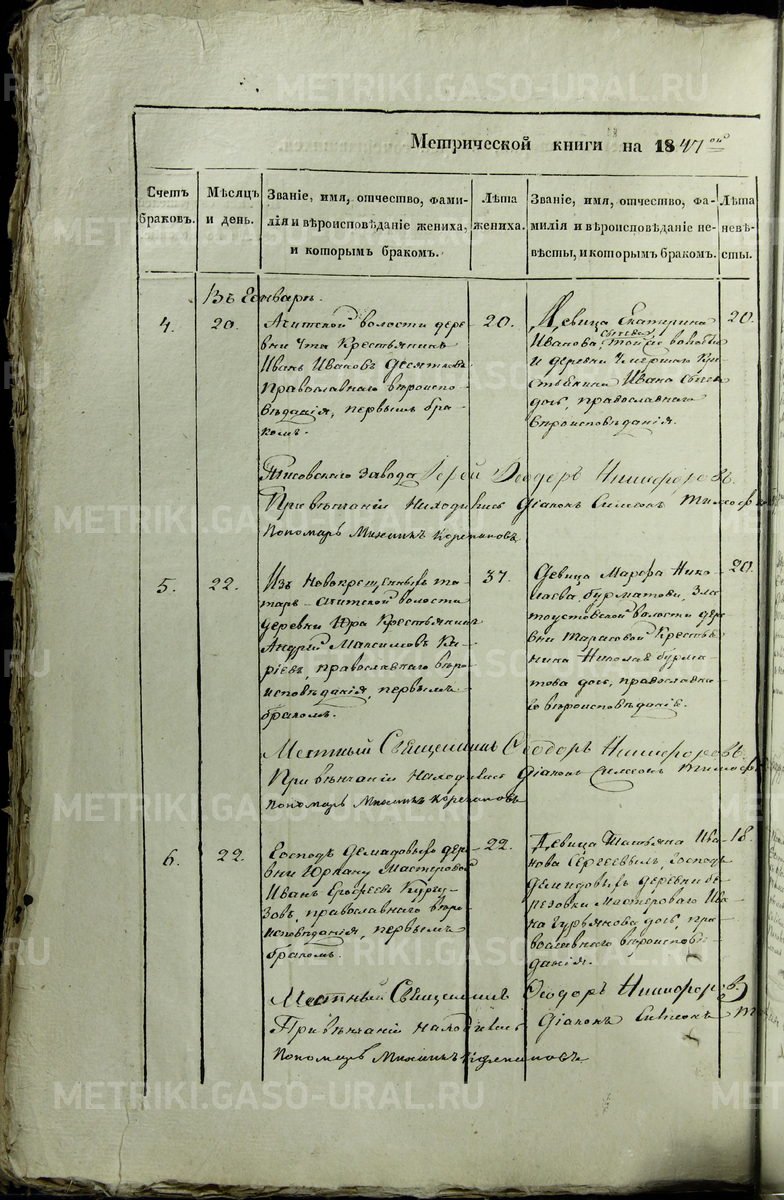 METRIKI.GASO-URAL.RU
Метрической книги на 1847 ой
Счетъ браковъ.
Мѣсяцъ и день.
Званіе, имя, отчество, фами-
лія и вѣроисповѣданіе жениха,
и которымъ бракомъ.
Лѣта
жениха.
Званіе, имя, отчество, фа-
милія и вѣроисповѣданіе не-
вѣсты, и которымъ бракомъ.
Лѣта
невѣ-
сты.
Въ Генварѣ.
4.
20.
Ачитской волости дере-
вни Ута Крестьянинъ
Иванъ Ивановъ Десятковъ
Православнаго вѣроиспо-
вѣданія, первымъ бра-
комъ.
20.
Девица Екатерина
Иванова, той же волости
и деревни Умершаго Кре-
стьянина Ивана
дочь, православнаго
вѣроисповѣданія.
20.
Завода Іерей Ѳеодоръ Никифоровъ.
При вѣнчаніи Находились Діаконъ Симеонъ
Пономарь
5.
22.
Изъ Новокрещенныхъ та-
таръ Ачитской волости
деревни Юра Крестьянинъ
Андрей Максимовъ Ка-
ріевъ, православнаго вѣро-
исповѣданія, первымъ
бракомъ.
37.
Девица Марфа Нико-
лаева Бурматова, Зла-
тоустовской волости дере-
вни Тарасовой Крестья-
нина Николая Бурма-
това дочь, православна-
го вѣроисповѣданіе.
20.
Местный Священникъ Ѳеодоръ Никифоровъ.
При вѣнчаніи Находились Діаконъ Симеонъ
Пономарь
6.
22.
Господъ Демидовыхъ дере-
вни Юркану Мастеровой
Иванъ Ерофеевъ
православнаго вѣро-
исповѣданія, первымъ
бракомъ.
22.
Девица Татьяна Ива-
нова Господъ
Демидовыхъ деревни Бе-
резовки Мастероваго Ива-
на Гурьянова дочь, пра-
вославнаго вѣроисповѣ-
данія.
18.
Местный Священникъ Ѳеодоръ Никифоровъ.
При вѣнчаніи находились Діаконъ Симеонъ
Пономарь